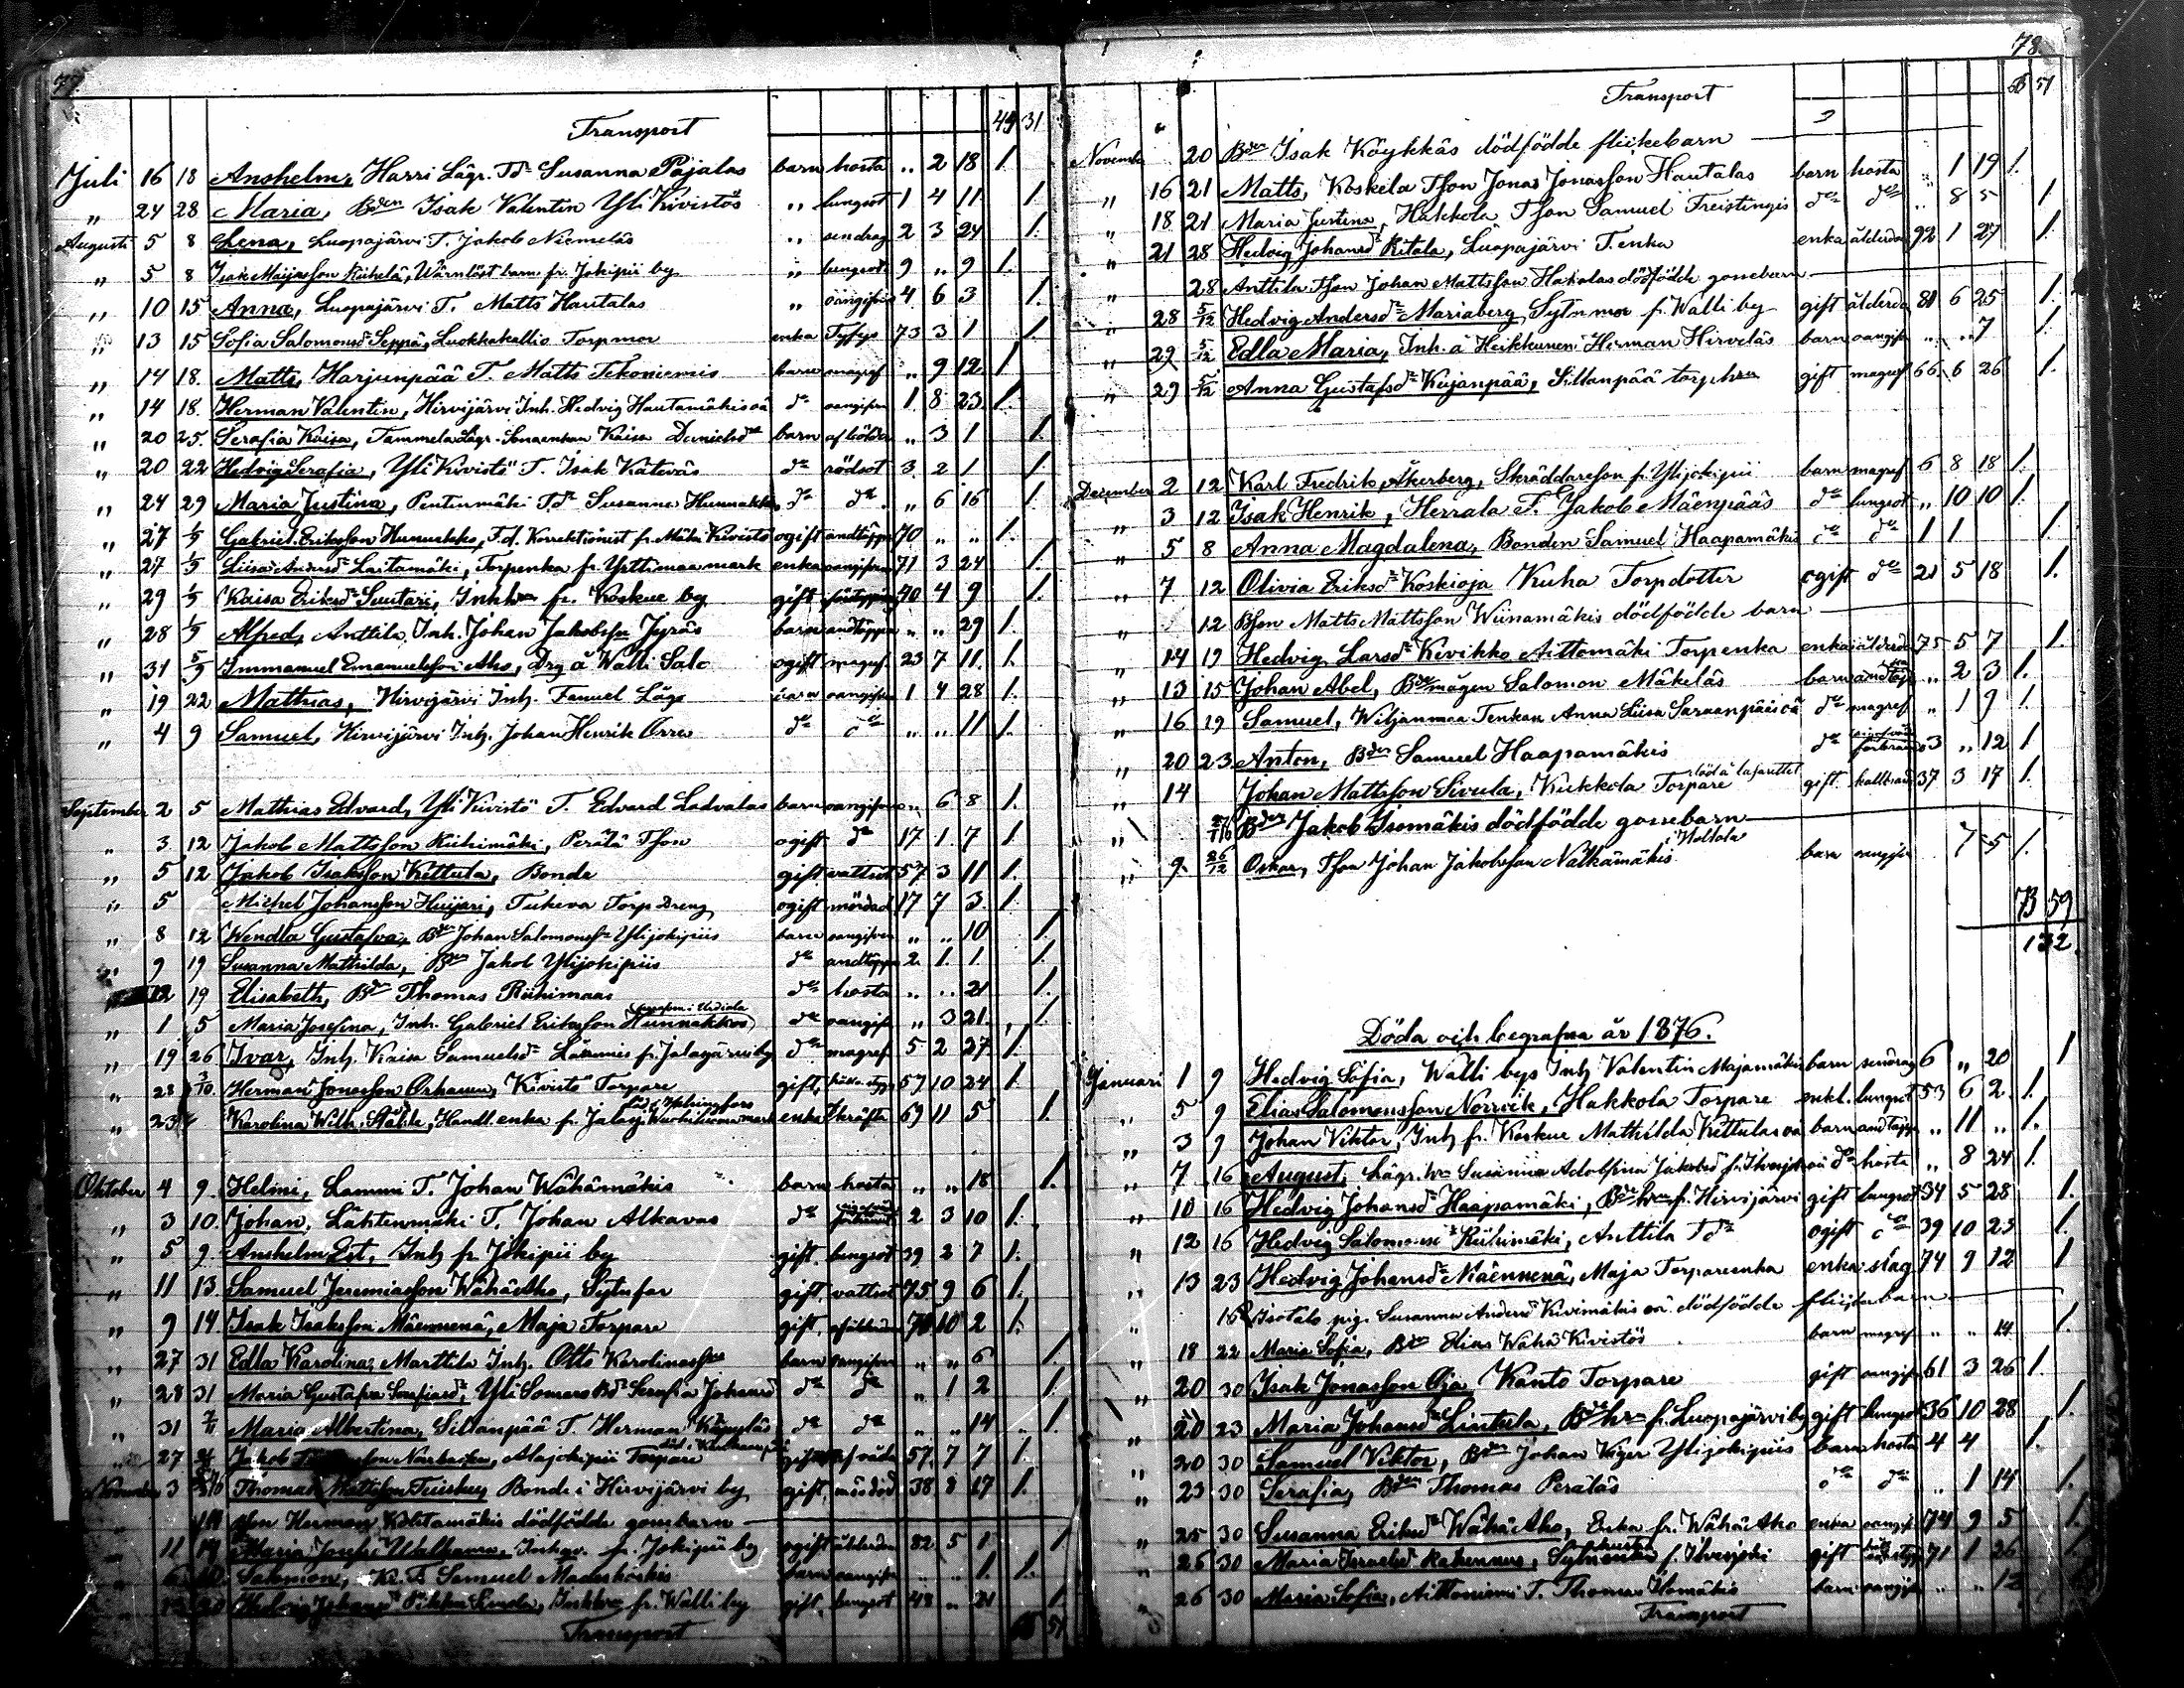 77
Transport 49 31
Juli 16 18 Anshelm, Harri Lägr. Tdr Susanna Pajalas barn hosta „ 2 18 1.
„ 24 28 Maria, Bden Isak Valentin Yli Kivistös „ lungsot 1 4 11 1.
Augusti 5 8 Lena, Luopajärvi T. Jakob Niemeläs „ sendrag 2 3 24 1.
„ 5 8 Isak Maijasson Riihelä, Wärnlöst barn fr. Jokipii by „ lungsot 9 „ 9 1.
„ 10 15 Anna, Luopajärvi T. Matts Hautalas „ oangifven 4 6 3 1.
„ 13 15 Sofia Salomonsdr Seppä, Luokkakallio Torpmor enka Tyfys 73 3 1 1.
„ 14 18. Matts, Harjunpää T. Matts Tekoniemis barn magref „ 9 12 1
„ 14 18. Herman Valentin, Hirvijärvi Inh. Hedvig Hautamäkis oä do oangifven 1. 8 23 1.
„ 20 25. Serafia Kaisa, Tammela Lägr. Kaisa Danielsdr barn „ 3 1 1.
„ 20 22 Hedvig Serafia, Yli Kivistö T. Isak Käteväs do rödsot 3. 2 1 1.
„ 24 29 Maria Justina, Pentinmäki Tdr Susanna Hunnakko do do „ 6 16 1.
„ 27 1/9 Gabriel Eriksson Hunnakko, F.d. Korrektionist fr. Mäki Kivistö ogift andtäppa 70 „ „ 1.
„ 27 1/9 Liisa Andersdr Laitamäki, Torpenka fr. mark enka oangifven 71 3 24 1.
„ 29 1/9 Kaisa Eriksdr Suutari, Inhhu fr. Koskue by gift 40 4 9 1.
„ 28 1/9 Alfred, Anttila Inh. Johan Jakobsson Jyräs barn andtäppa „ „ 29 1.
„ 31 5/9 Immanuel Emanuelsson Aho, Drg å Walli Salo ogift magref 23 7 11. 1.
„ 19 22 Mathias, Hirvijärvi Inh. Fanuel Lägs barn oangifven 1 4 28 1.
„ 4 9 Samuel, Hirvijärvi Inh. Johan Henrik Orre do do „ „ 11 1.
September 2 5 Mathias Edvard, Yli Kivistö T. Edvard Ladvalas barn oangifven „ 6 8 1.
„ 3 12 Jakob Mattsson Riihimäki, Perälä Tson ogift do 17 1 7 1.
„ 5 12 Jakob Isaksson Kettula, Bonde gift vattsot 57 3 11 1.
„ 5 Michel Johansson Huijari, Tukeva Torp Dreng ogift mördad 17 7 3. 1.
„ 8 12 Wendla Gustafva, Bden Johan Salomonss Ylijokipiis barn oangifven „ „ 10 1.
„ 9 19 Susanna Mathilda, Bden Jakob Ylijokipiis do andtäppa 2. 1. 1. 1.
„ 12 19 Elisabeth, Bden Thomas Riihimaas do hosta „ „ 21 1.
„ 1 5 Maria Josefina, Inh. Gabriel Eriksson Hunnakkos do oangifven „ 3 21. 1.
„ 19 26 Ivar, Inh. Kaisa Samuelsdr Lammis fr. Jalasjärvi by do magref 5 2 27 1.
„ 28 3/10. Herman Jonasson Orhanen, Kivistö Torpare gift 57 10 24 1.
„ 23 Karolina Wilh. Ståhle, Handl. enka fr. Jalasj. enka kräfta 69 11 5 1.
Oktober 4 9. Helmi, Lammi T. Johan Wähämäkis barn hosta „ „ 18 1.
„ 3 10. Johan, Lähtenmäki T. Johan Alkavas do 2 3 10 1.
„ 5 9. Anshelm Est, Inh fr Jokipii by gift. lungsot 39 2 7 1.
„ 11 13. Samuel Jeremiasson WähäAho, Sytnfar gift. vattsot 75 9 6 1.
„ 9 14. Isak Isaksson Mäenmenä, Maja Torpare gift. 70 10 2 1.
„ 27 31 Edla Karolina, Marttila Inh. Otto Karolinasson barn oangifven „ „ 6 1.
„ 28 31 Maria Gustafva, Yli Somero Bdr Serafia Johansdr do do „ 1 2 1.
„ 31 Maria Albertina, Sillanpää T. Herman Käpyläs do do „ „ 14 1.
„ 27 Jakob Norrbacka, Alajokipii Torpare gift 57. 7 7 1.
November 3 Thomas Mattsson, Bonde i Hirvijärvi by gift, mördad 38 8 17 1.
14 Tson Herman Kohtamäkis dödfödde gossebarn
11 14 Maria Josefs, fr. Jokipii by ogift ålderdom 82 5 1 1
Salomon, Samuel barn oangifven „ „ 1. 1.
20 Hedvig Johansdr, Inhhu fr. Walli by gift. lungsot 48 „ 21 1.
Transport 65 51
78.
Transport 65 51
November 20 Bden Isak Köykkäs dödfödde flickebarn
„ 16 21 Matts, Koskela Tson Jonas Jonasson Hautalas barn hosta „ 1 19 1.
„ 18 21 Maria Justina, Hakkola Tson Samuel Freistingis do do „ 8 5 1.
„ 21 28 Hedvig Johansdr Ritala, Luopajärvi T. enka enka ålderdom 92 1 27 1.
„ 28 Anttila Tson Johan Mattsson Hakalas dödfödde gossebarn
„ 28 5/12 Hedvig Andersdr Mariaberg Sytn mor fr. Walli by gift ålderdom 81 6 25 1.
„ 29 5/12 Edla Maria, Inh. å Heikkunen Herman Hirveläs barn oangifven „ „ 7 1.
„ 29 5/12 Anna Gustafsdr Kujanpää, Sillanpää torphu gift magref 66 6 26 1.
December 2 12 Karl Fredrik Åkerberg, Skräddareson fr. Ylijokipii barn magref 6 8 18 1.
„ 3 12 Isak Henrik, Herrala T. Jakob Mäenpääs do lungsot „ 10 10 1.
„ 5 8 Anna Magdalena, Bonden Samuel Haapamäkis do do 1 1 1.
„ 7 12 Olivia Eriksdr Koskioja Kuha Torpdotter ogift do 21 5 18 1.
„ 12 Bson Matts Mattsson Wiinamäkis dödfödde barn
„ 14 19 Hedvig Larsdr Kivikko Aittomäki Torpenka enka ålderdom 75 5 7 1.
„ 13 15 Johan Abel, Bdemågen Salomon Mäkeläs barn andtäppa „ 2 3 1.
„ 16 19 Samuel, Wiljanmaa Tenkan Anna Liisa Saraanpääs oä do magref „ 1 9 1.
„ 20 23. Anton, Bden Samuel Haapamäkis do 3 „ 12 1.
„ 14 Johan Mattsson Sivula, Kukkola Torpare död å lasarettet gift. kallbrand 37 3 17 1.
„ Bden Jakob Isomäkis dödfödde gossebarn
„ 9 26/12 Oskar, Tson Johan Jakobsson Nälkämäkis barn oangifven 7 5 1.
73 59
132.
Döda och begrafna år 1876.
Januari 1 9 Hedvig Sofia, Walli bys Inh Valentin Majamäkis barn sendrag 6 „ 20 1
„ 5 9 Elias Salomonsson Norrvik, Hakkola Torpare enkl. lungsot 53 6 2. 1.
„ 3 9 Johan Viktor, Inh fr. Koskue Mathilda Kettulas oä barn andtäppa „ 11 „ 1.
„ 7 16 August, Lägr. hu Susanna Adolfina Jakobsdr oä do hosta „ 8 24 1.
„ 10 16 Hedvig Johansdr Haapamäki, Bdehu fr. Hirvijärvi gift lungsot 34 5 28 1.
„ 12 16 Hedvig Salomonsdr Riihimäki, Anttila Tdr ogift do 39 10 23 1.
„ 13 23 Hedvig Johansdr Mäenmenä, Maja Torpareenka enka slag 74 9 12 1
„ 16 Isotalo pig. Susanna Andersdr Kivimäkis oä. dödfödde flickebarn
„ 18 22 Maria Sofia, Bden Elias Wähä Kivistös barn magref „ „ 14 1.
„ 20 30 Isak Jonasson Oja, Kanto Torpare gift oangifven 61 3 26 1.
„ 20 23 Maria Johansdr Lintula, Bdehu fr. Luopajärvi by gift lungsot 36 10 28 1.
„ 20 30 Samuel Viktor, Bden Johan Ylijokipiis barn hosta 4 4 1.
„ 23 30 Serafia, Bden Thomas Peräläs do do „ 1 14 1.
„ 25 30 Susanna Eriksdr WähäAho, Enka fr. WähäAho enka oangifven 74 9 5 1.
„ 26 30 Maria Israelsdr Rahunnen, fr. Ilvesjoki gift 71 1 26 1.
„ 26 30 Maria Sofia, Aittoniemi T. Thomas Ylömäkis barn oangifven „ „ 12
Transport